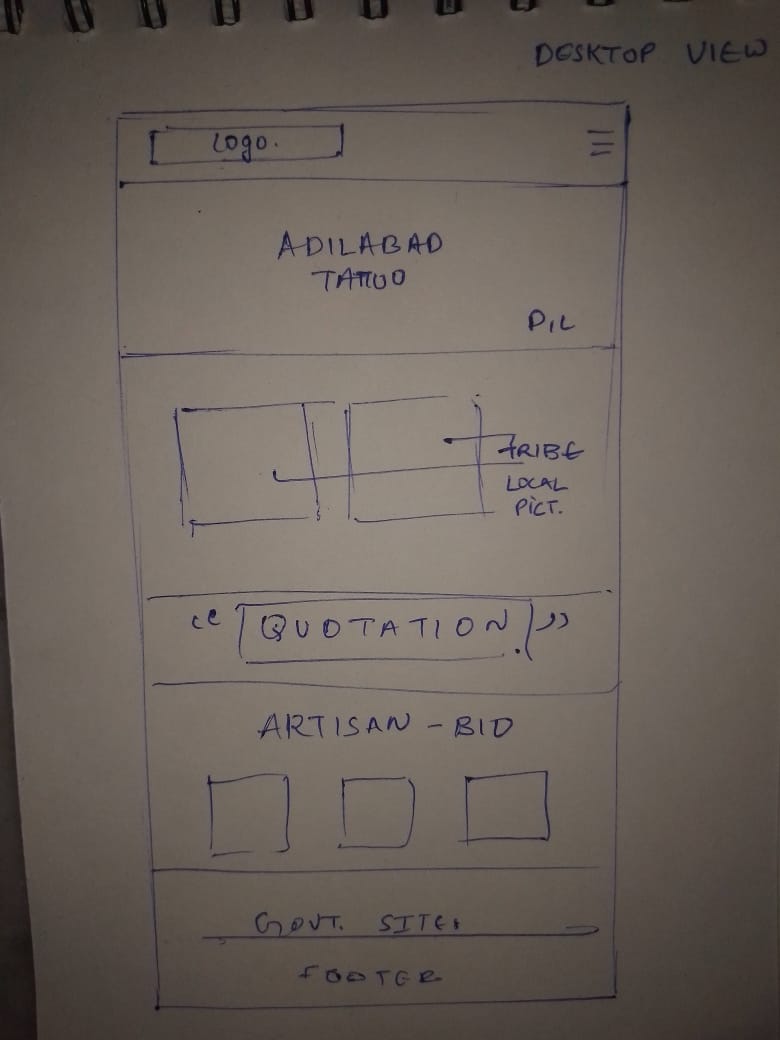 DESKTOP VIEW
Logo.
ADILABAD
TATTOO
TRIBE
LOCAL
PICT.
“ QUOTATION. ”
ARTISAN - BID
GOVT. SITES
FOOTER